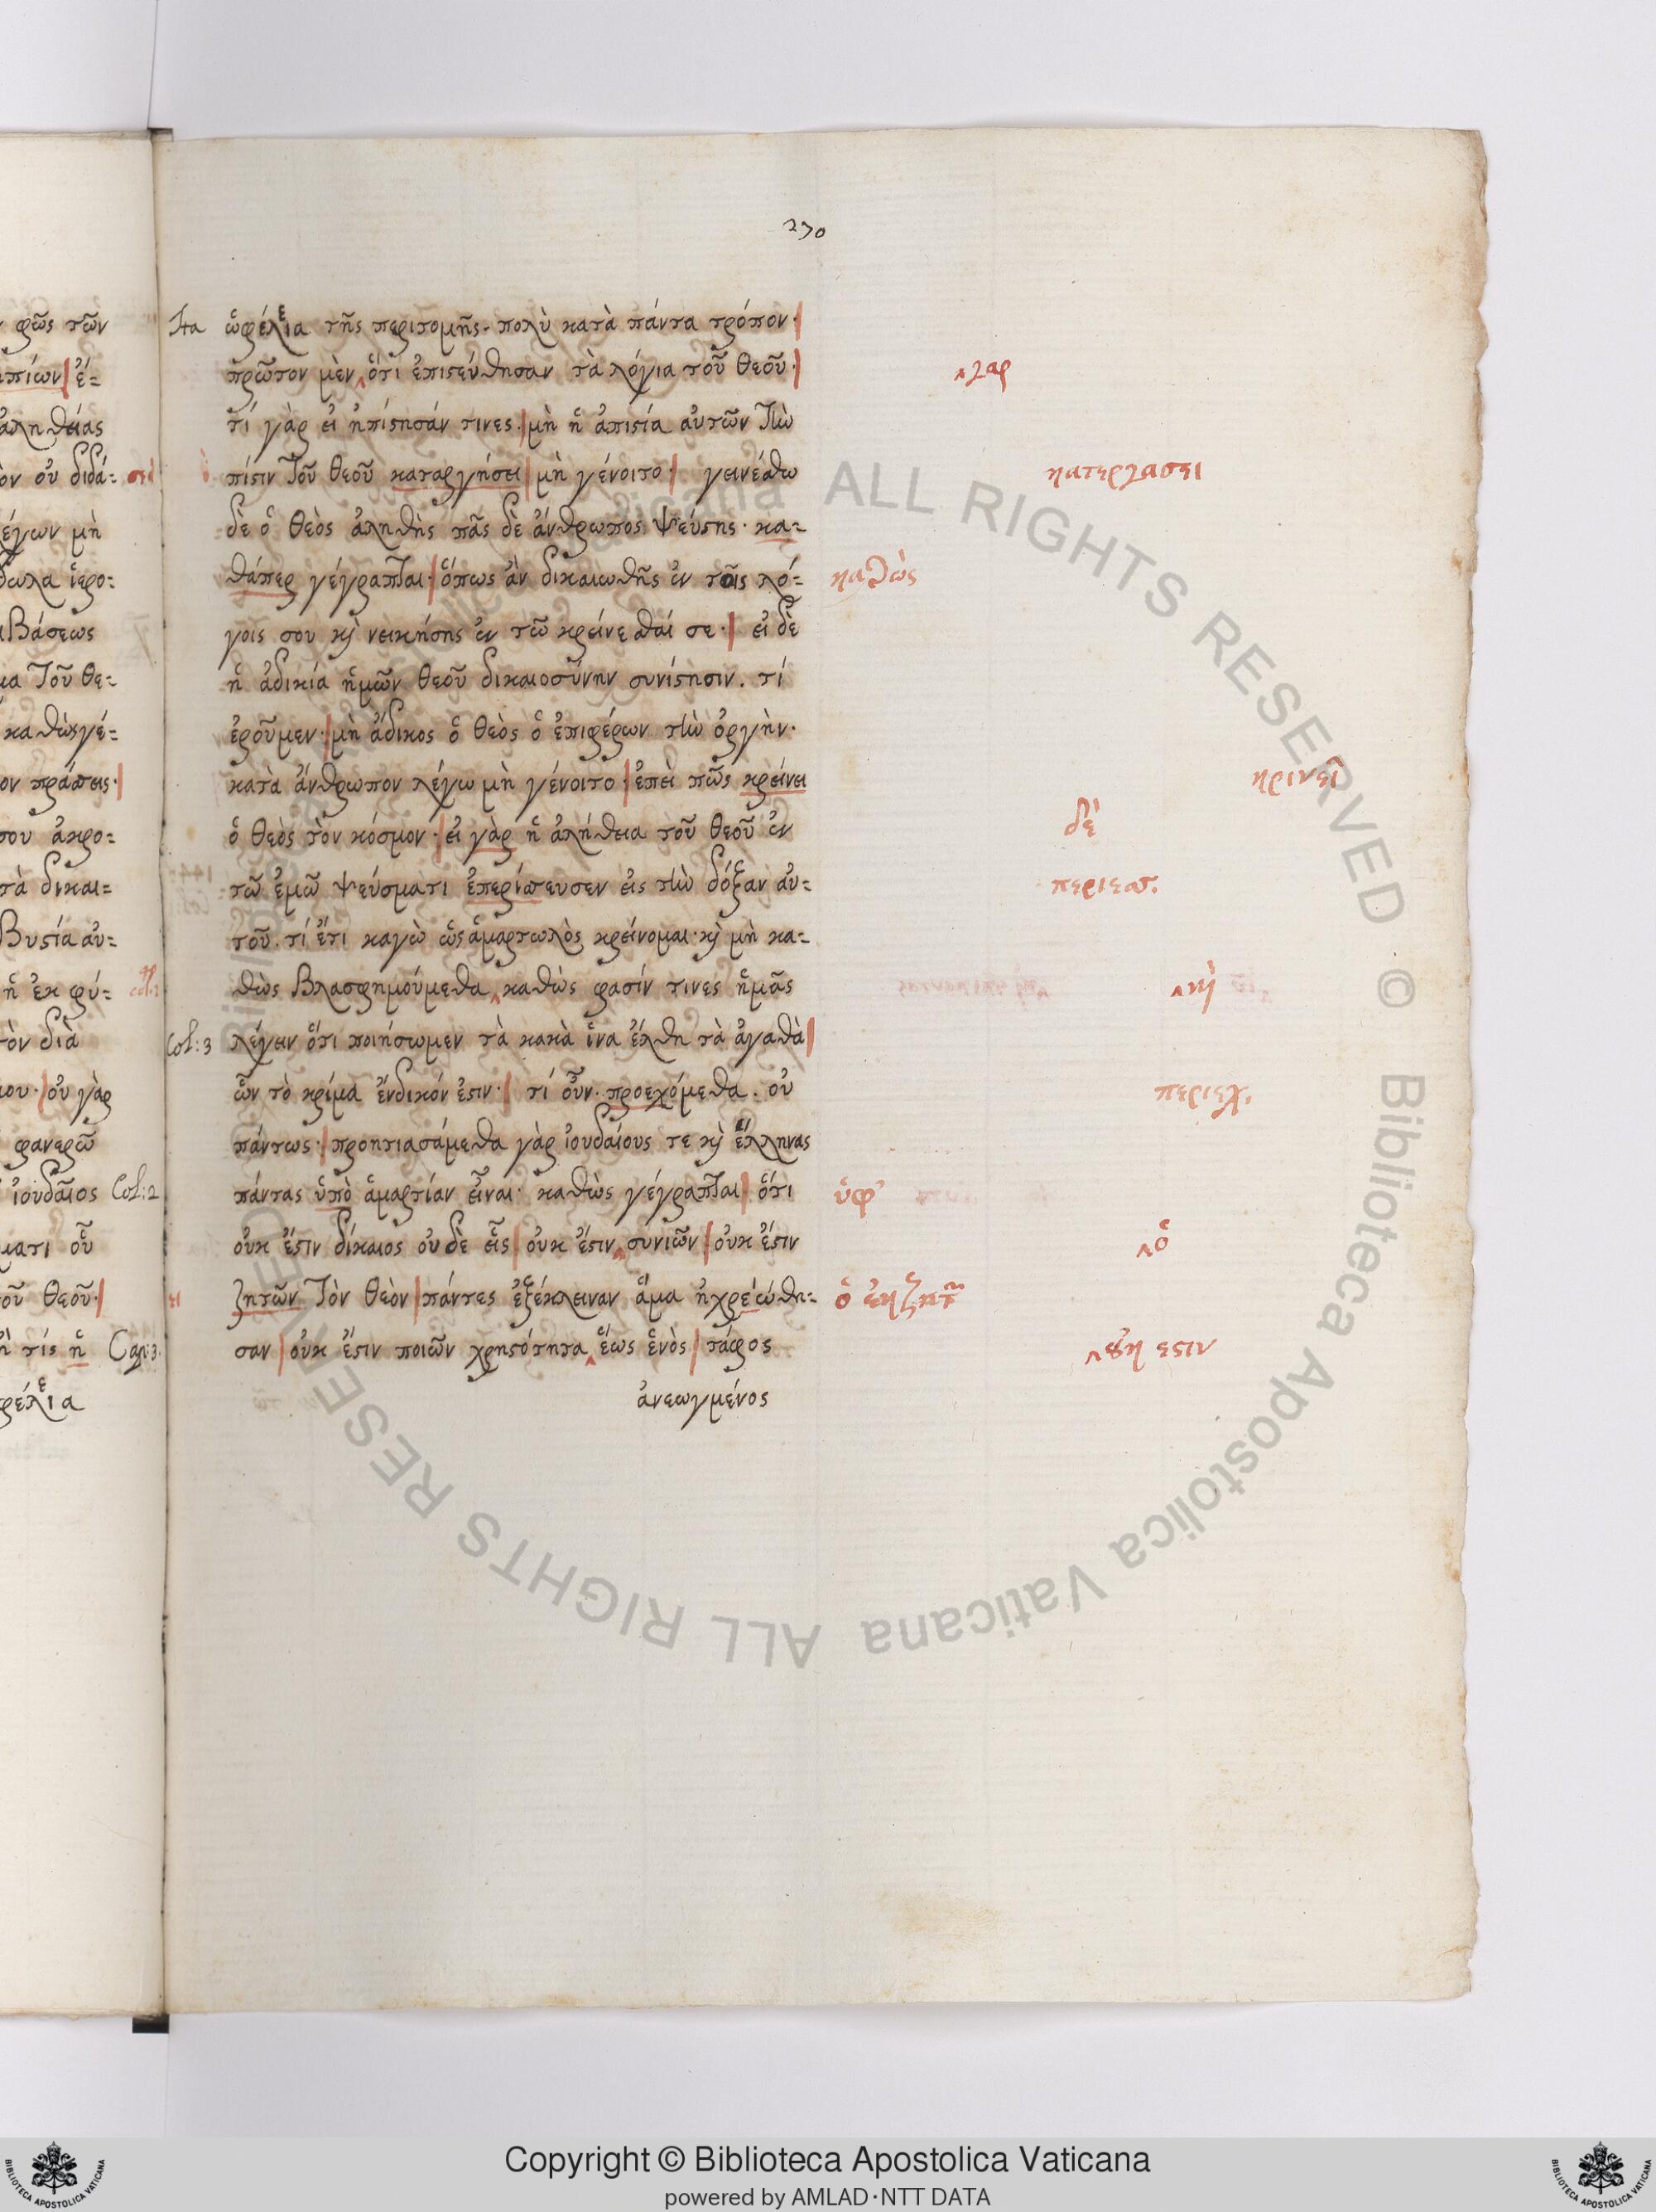 270
φῶς τῶν
πίων ἐ=
ἀληθείας
ὸν οὐ διδά=
έγων μὴ
δωλα ἱερο=
Βάσεως
μα Τοῦ θε=
καθὼς γέ=
ον πράσσεις·
σου ἀκρο=
τὰ δικαι=
Βυστία αὐ=
ἡ ἐκ φύ=
τὸν διὰ
μου· οὐ γὰρ
φανερῶ
ἰουδαῖος Col: 2
ματι οὗ
οῦ θεοῦ·
ἢ τίς ἡ Cap: 3.
φέλεια
Ita ὠφέλεια τῆς περιτομῆς. πολὺ κατὰ πάντα τρόπον·
πρῶτον μὲν ‸ ὅτι ἐπιστεύθησαν τὰ λόγια τοῦ θεοῦ· ‸γαρ
τί γὰρ εἰ ἠπίστησάν τινες. μὴ ἡ ἀπιστία αὐτῶν Τὴν
πίστιν Τοῦ θεοῦ καταργήσει μὴ γένοιτο· γεινέσθω κατεργασει
δὲ ὁ θεὸς ἀληθὴς πᾶς δὲ ἄνθρωπος ψεύστης· κα=
θάπερ γέγραπται· ὅπως ἂν δικαιωθῆς ἐν τοῖς λό= καθὼς
γοις σου καὶ νεικήσης ἐν τῶ κρείνεσθαί σε· εἰ δὲ
ἡ ἀδικία ἡμῶν θεοῦ δικαιοσύνην συνίστησιν. τί
ἐροῦμεν· μὴ ἄδικος ὁ θεὸς ὁ ἐπιφέρων τὴν ὀργὴν·
κατὰ ἄνθρωπον λέγω μὴ γένοιτο· ἐπεὶ πῶς κρείνει κρινεῖ
ὁ θεὸς τὸν κόσμον· εἰ γὰρ ἡ ἀλήθεια τοῦ θεοῦ ἐν δὲ
τῶ ἐμῶ ψεύσματι ἐπερίσσευσεν εἰς τὴν δόξαν αὐ= περιεσσ.
τοῦ. τί ἔτι καγὼ ὡς ἁμαρτωλὸς κρείνομαι· καὶ μὴ κα=
θὼς Βλασφημούμεθα ‸ καθὼς φασίν τινες ἡμᾶς ‸καὶ
Col: 3 λέγειν ὅτι ποιήσωμεν τὰ κακὰ ἵνα ἔλθη τὰ ἀγαθὰ
ὧν τὸ κρίμα ἔνδικόν ἐστιν· τί οὖν. προεχόμεθα. οὐ περιεχ.
πάντως· προητιασάμεθα γὰρ ἰουδαίους τε καὶ ἕλληνας
πάντας ὑπὸ ἁμαρτίαν εἶναι· καθὼς γέγραπται ὅτι ὑφ'
οὐκ ἔστιν δίκαιος οὐδὲ εἷς οὐκ ἔστιν ‸ συνιῶν οὐκ ἔστιν ‸ὁ
ζητῶν Τὸν θεὸν πάντες ἐξέκλειναν ἅμα ἠχρεώθη= ὁ ἐκζητῶ
σαν οὐκ ἔστιν ποιῶν χρηστότητα ‸ ἕως ἑνὸς τάφος ‸οὐκ εστιν
ἀνεωγμένος
Copyright © Biblioteca Apostolica Vaticana
powered by AMLAD·NTT DATA
© Biblioteca Apostolica Vaticana ALL RIGHTS RESERVED
BIBLIOTECA APOSTOLICA VATICANA
BIBLIOTECA APOSTOLICA VATICANA